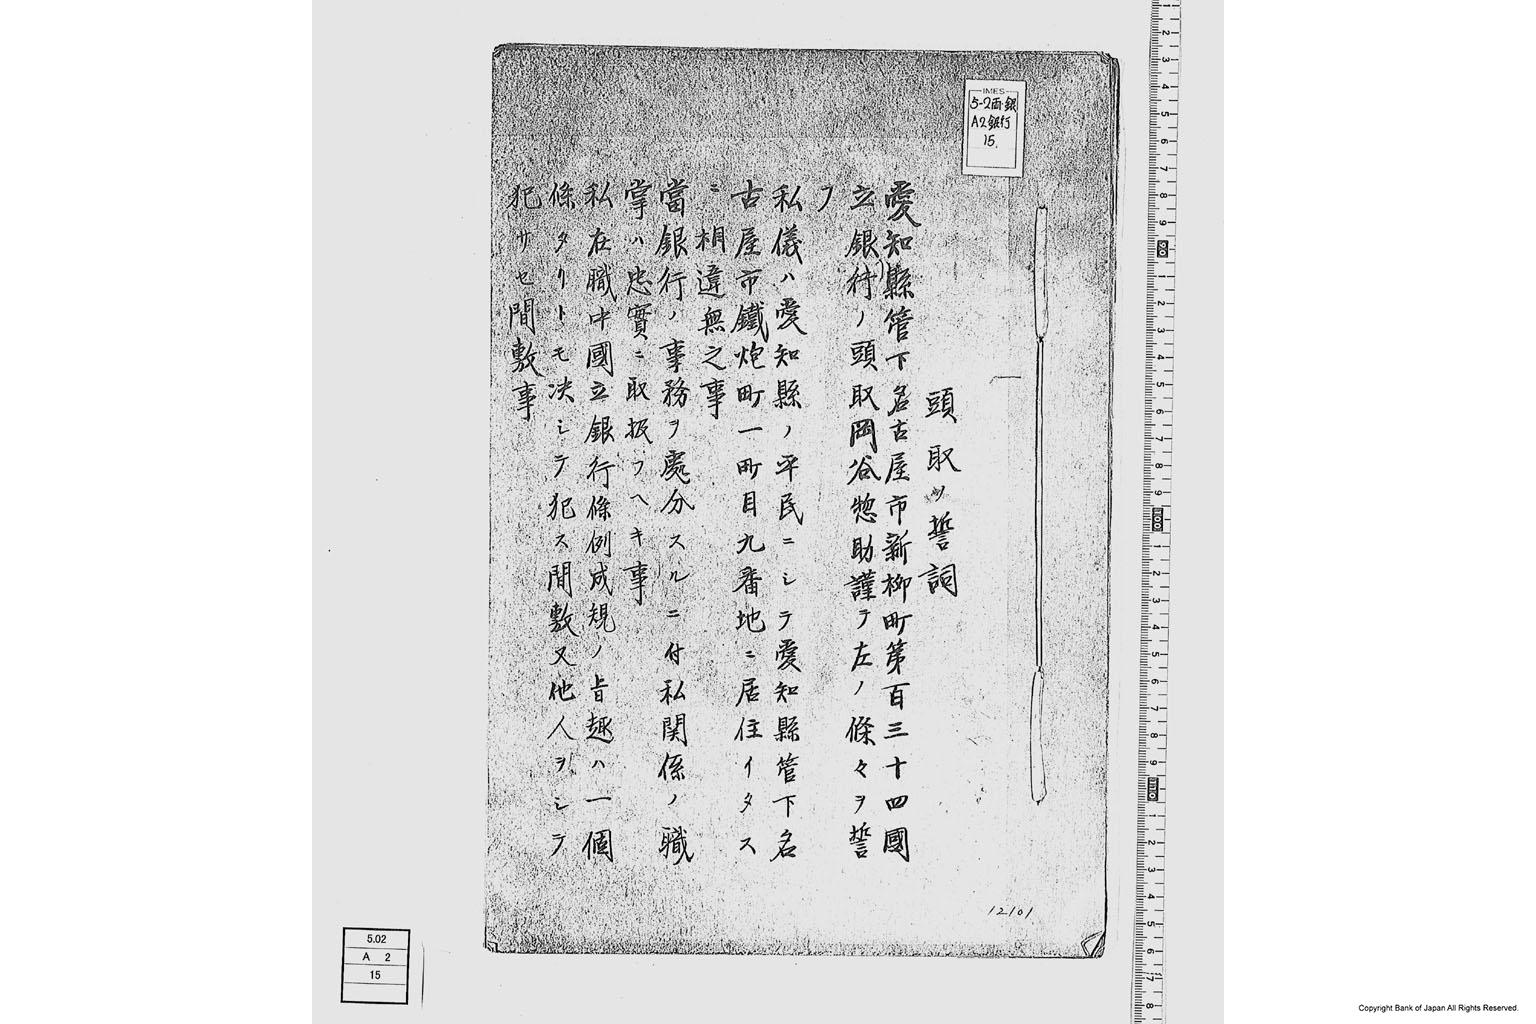 頭取ノ誓詞
愛知縣管下名古屋市新柳町第百三十四國
立銀行ノ頭取岡谷惣助謹テ左ノ條々ヲ誓
フ
私儀ハ愛知縣ノ平民ニシテ愛知縣管下名
古屋市鐵炮町一町目九番地ニ居住イタス
ニ相違無之事
當銀行ノ事務ヲ處分スルニ付私関係ノ職
掌ハ忠實ニ取扱フヘキ事
私在職中國立銀行條例成規ノ旨趣ハ一個
條タリトモ決シテ犯ス間敷又他人ヲシテ
犯サセ間敷事
IMES
5-2西・銀
A2銀行
15.
12101
5.02
A 2
15
Copyright Bank of Japan All Rights Reserved.